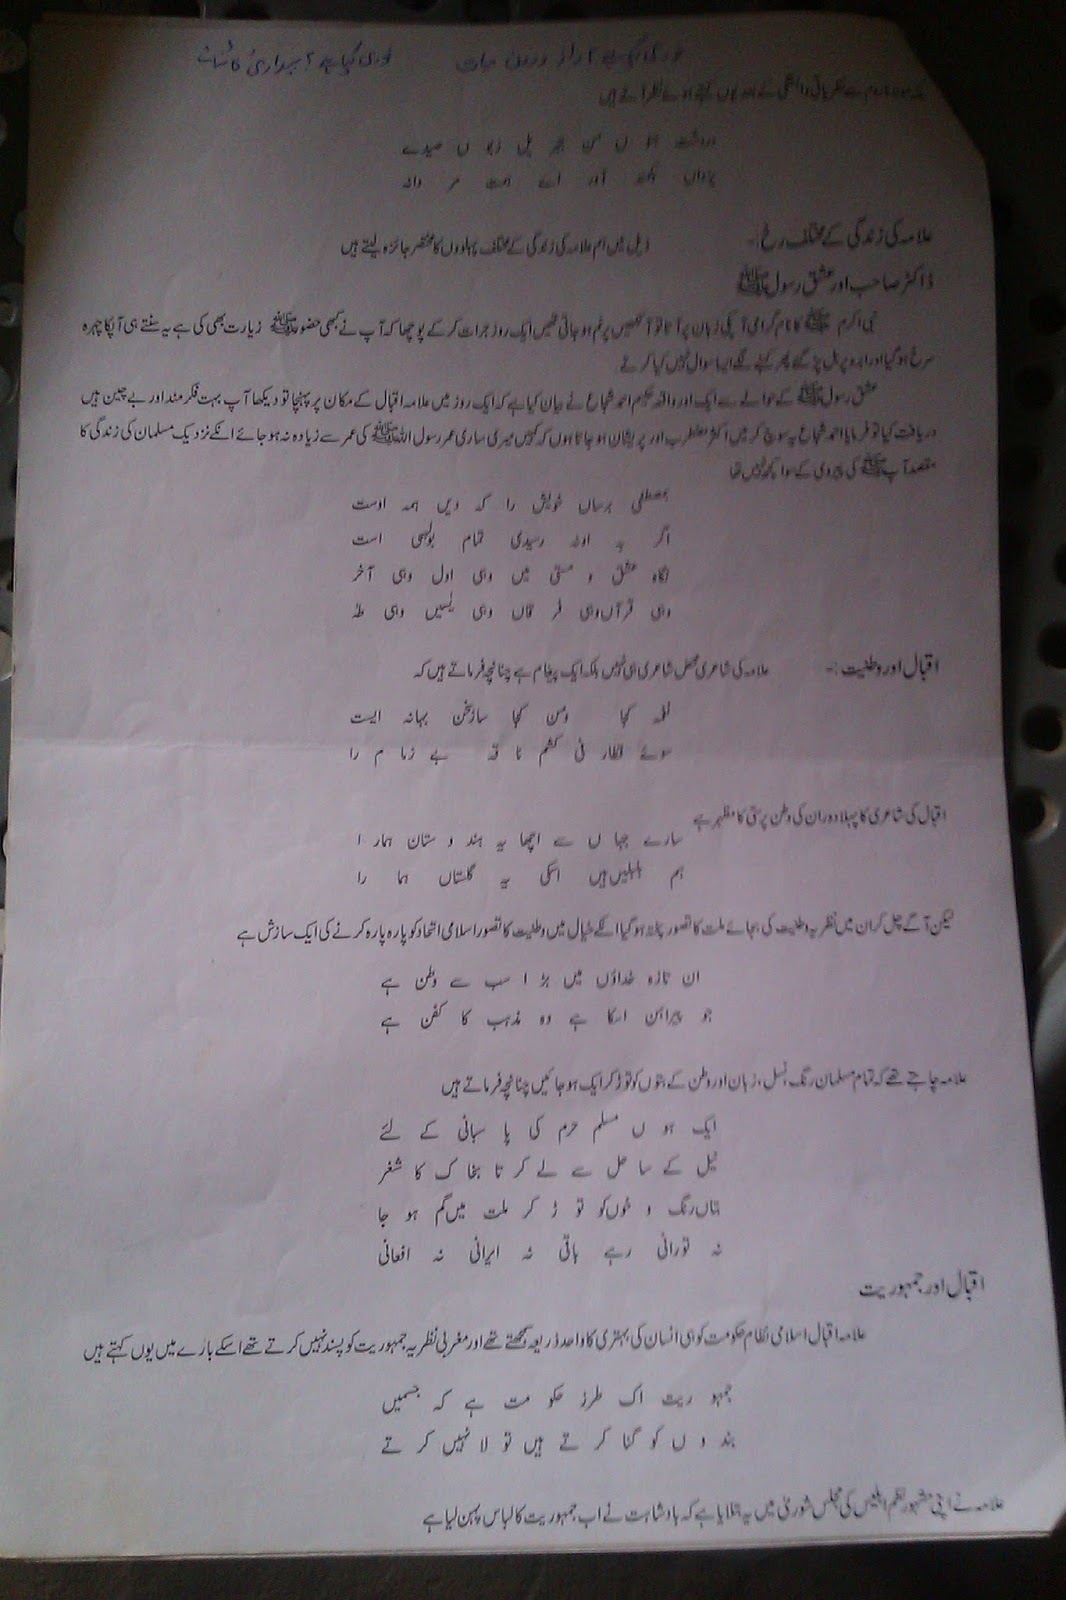 خودی کیا ہے راز درون حیات خودی کیا ہے بیداری کائنات
سے نظریاتی وابستگی کے بعد یوں کہتے ہوئے نظر آتے ہیں
در دشت جنو ں من جبر یل زبو ں صیدے
یزداں بکمند آور اے ہمت مر دانہ
علامہ کی زندگی کے مختلف رخ:۔ ذیل میں ہم علامہ کی زندگی کے مختلف پہلووں کا مختصر جائزہ لیتے ہیں
ڈاکٹر صاحب اور عشق رسول ﷺ
نبی اکرم ﷺ کا نام گرامی آپکی زبان پر آتا تو آنکھیں پرنم ہو جاتی تھیں ایک روز جرات کرکے پوچھا کہ آپ نے کبھی حضور ﷺ زیارت بھی کی ہے یہ سنتے ہی آپکا چہرہ
سرخ ہو گیا اور ابرو پر بل پڑ گئے پھر کہنے لگے ایسا سوال نہیں کیا کرتے
عشق رسول ﷺ کے حوالے سے ایک اور واقعہ حکیم احمد شجاع نے بیان کیا ہے کہ ایک روز میں علامہ اقبال کے مکان پر پہنچا تو دیکھا آپ بہت فکر مند اور بے چین ہیں
دریافت کیا تو فرمایا احمد شجاع یہ سوچ کر میں اکثر مضطرب اور پریشان ہو جاتا ہوں کہ کہیں میری ساری عمر رسول اللہ ﷺ کی عمر سے زیادہ نہ ہو جائے انکے نزدیک مسلمان کی زندگی کا
مقصد آپ ﷺ کی پیروی کے سوا کچھ نہیں تھا
بمصطفی برساں خویش را کہ دیں ہمہ اوست
اگر بہ او نہ رسیدی تمام بولہبی است
نگاہ عشق و مستی میں وہی اول وہی آخر
وہی قرآں وہی فر قاں وہی یٰسیں وہی طٰہٰ
اقبال اور وطنیت:۔ علامہ کی شاعری محض شاعری ہی نہیں بلکہ ایک پیغام ہے چنانچہ فرماتے ہیں کہ
نغمہ کجا ومن کجا سازسخن بہانہ ایست
سوئے قطار می کشم نا قہ بے زما م را
اقبال کی شاعری کا پہلا دور ان کی وطن پرستی کا مظہر ہے
سارے جہا ں سے اچھا یہ ہند و ستان ہمار ا
ہم بلبلیں ہیں اسکی یہ گلستاں ہما را
لیکن آگے چل کر ان میں نظریہ وطنیت کی بجائے ملت کا تصور پختہ ہو گیا انکے خیال میں وطنیت کا تصور اسلامی اتحاد کو پارہ پارہ کرنے کی ایک سازش ہے
ان تازہ خداؤں میں بڑ ا سب سے وطن ہے
جو پیراہن اسکا ہے وہ مذہب کا کفن ہے
علامہ چاہتے تھے کہ تمام مسلمان رنگ، نسل، زبان اور وطن کے بتوں کو توڑ کر ایک ہو جائیں چنانچہ فرماتے ہیں
ایک ہو ں مسلم حرم کی پا سبانی کے لئے
نیل کے سا حل سے لے کر تا بخا ک کا شغر
بتاں رنگ و خوں کو تو ڑ کر ملت میں گم ہو جا
نہ تورانی رہے باقی نہ ایرانی نہ افغانی
اقبال اور جمہوریت
علامہ اقبال اسلامی نظام حکومت کو ہی انسان کی بہتری کا واحد ذریعہ سمجھتے تھے اور مغربی نظریہ جمہوریت کو پسند نہیں کرتے تھے اسکے بارے میں یوں کہتے ہیں
جمہو ریت اک طرز حکو مت ہے کہ جسمیں
بند و ں کو گنا کر تے ہیں تو لا نہیں کر تے
علامہ نے اپنی مشہور نظم ابلیس کی مجلس شوریٰ میں یہ بتلایا ہے کہ بادشاہت نے اب جمہوریت کا لباس پہن لیا ہے